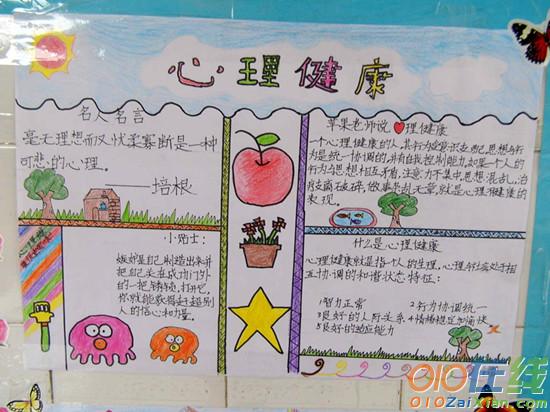 心理健康
名人名言
毫无理想而又忧柔寡断是一种
可悲的心理。
——培根
小贴士:
嫉妒是自己制造出来并
把自己关在成功门外
的一把锈锁,打开它,
你就能获得赶超别
人的信心和力量。
苹果老师说 理健康
一个心理健康的人,其行为受意识支配,思想与行
为是统一协调的,并有自我控制能力,如果一个人的
行为与思想相互矛盾,注意力不集中,思想混乱,语
言支离破碎,做事杂乱无章,就是心理不健康的
表现。
什么是心理健康
心理健康就是指个人的生理,心理与社会处于相
互协调的和谐状态特征:
1智力正常 2行为协调统一
3良好的人际关系 4情绪稳定与愉快
5良好的适应能力
010在线
010ZaiXian.com